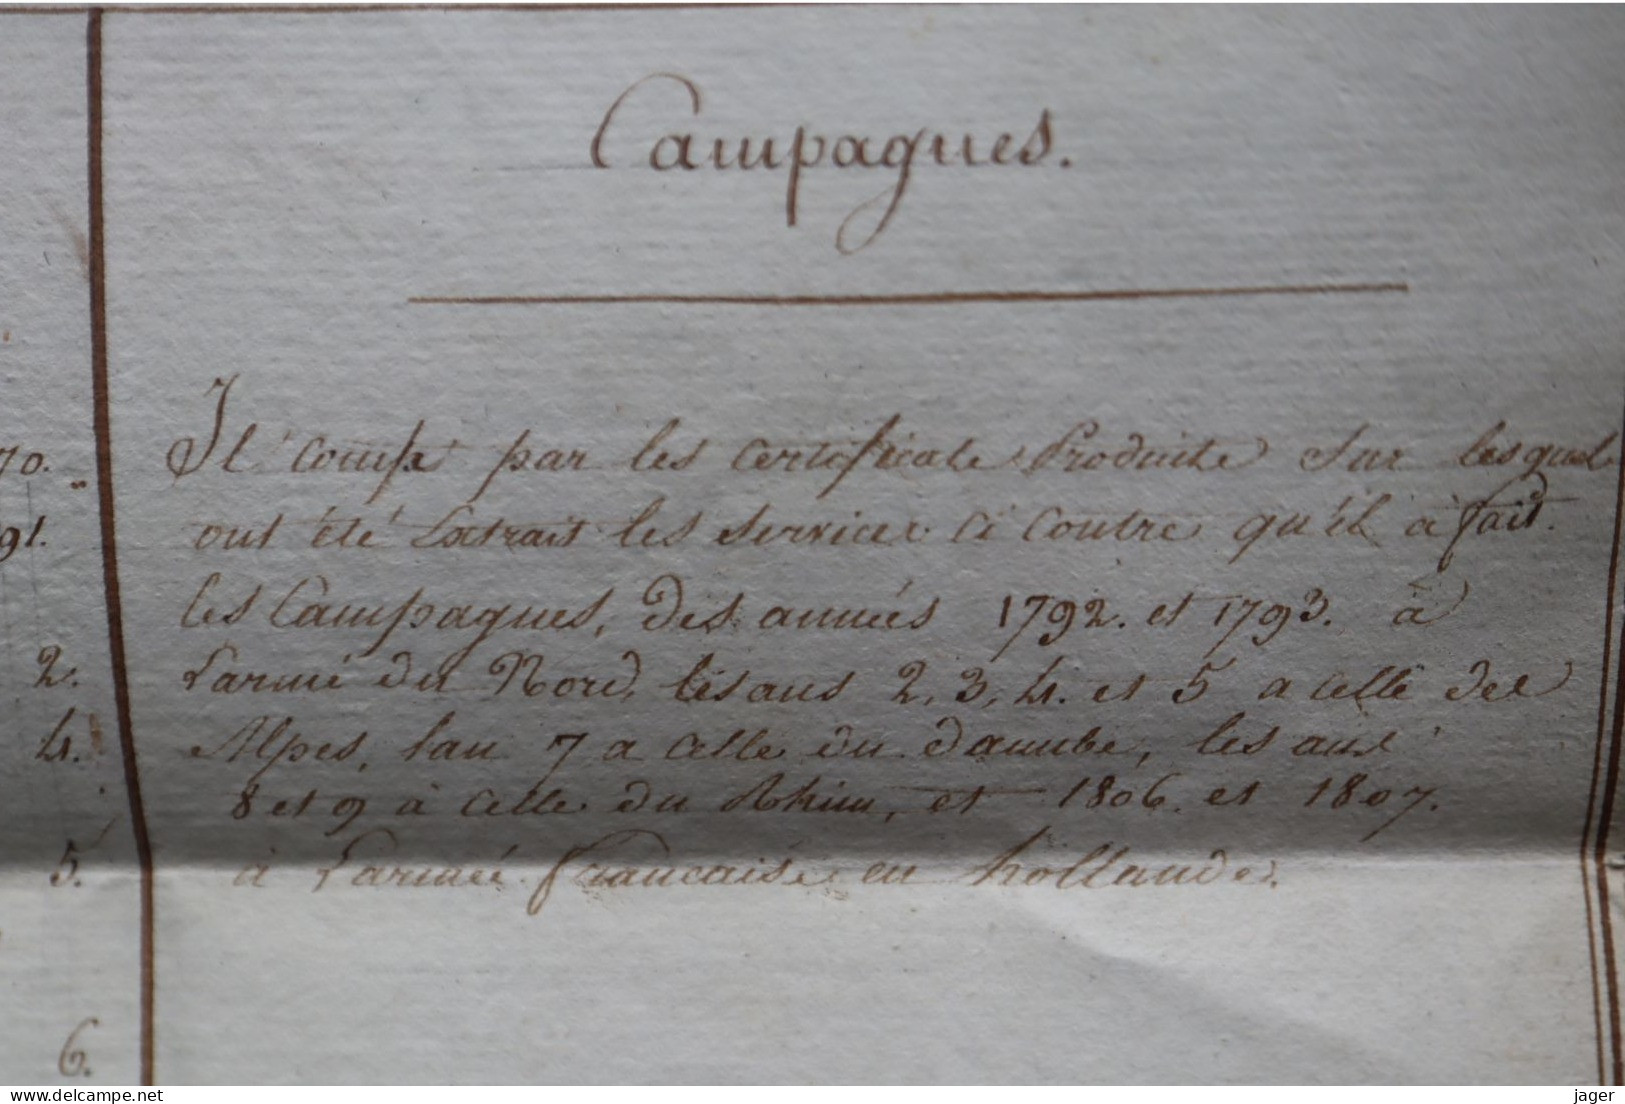 Campagnes.
70.
Il compt par les certificats Produits Sur lesquels
91.
ont été Extrait les services ci contre qu'il à fait
les Campagnes, des années 1792. et 1793. à
2.
L'armé du Nord, les ans 2, 3, 4. et 5 a celle des
4.
Alpes, lan 7 a celle du danube, les ans
8 et 9 à celle du Rhin, et 1806. et 1807.
5.
à L'armée francaise en hollande.
6.
delcampe.net
jager